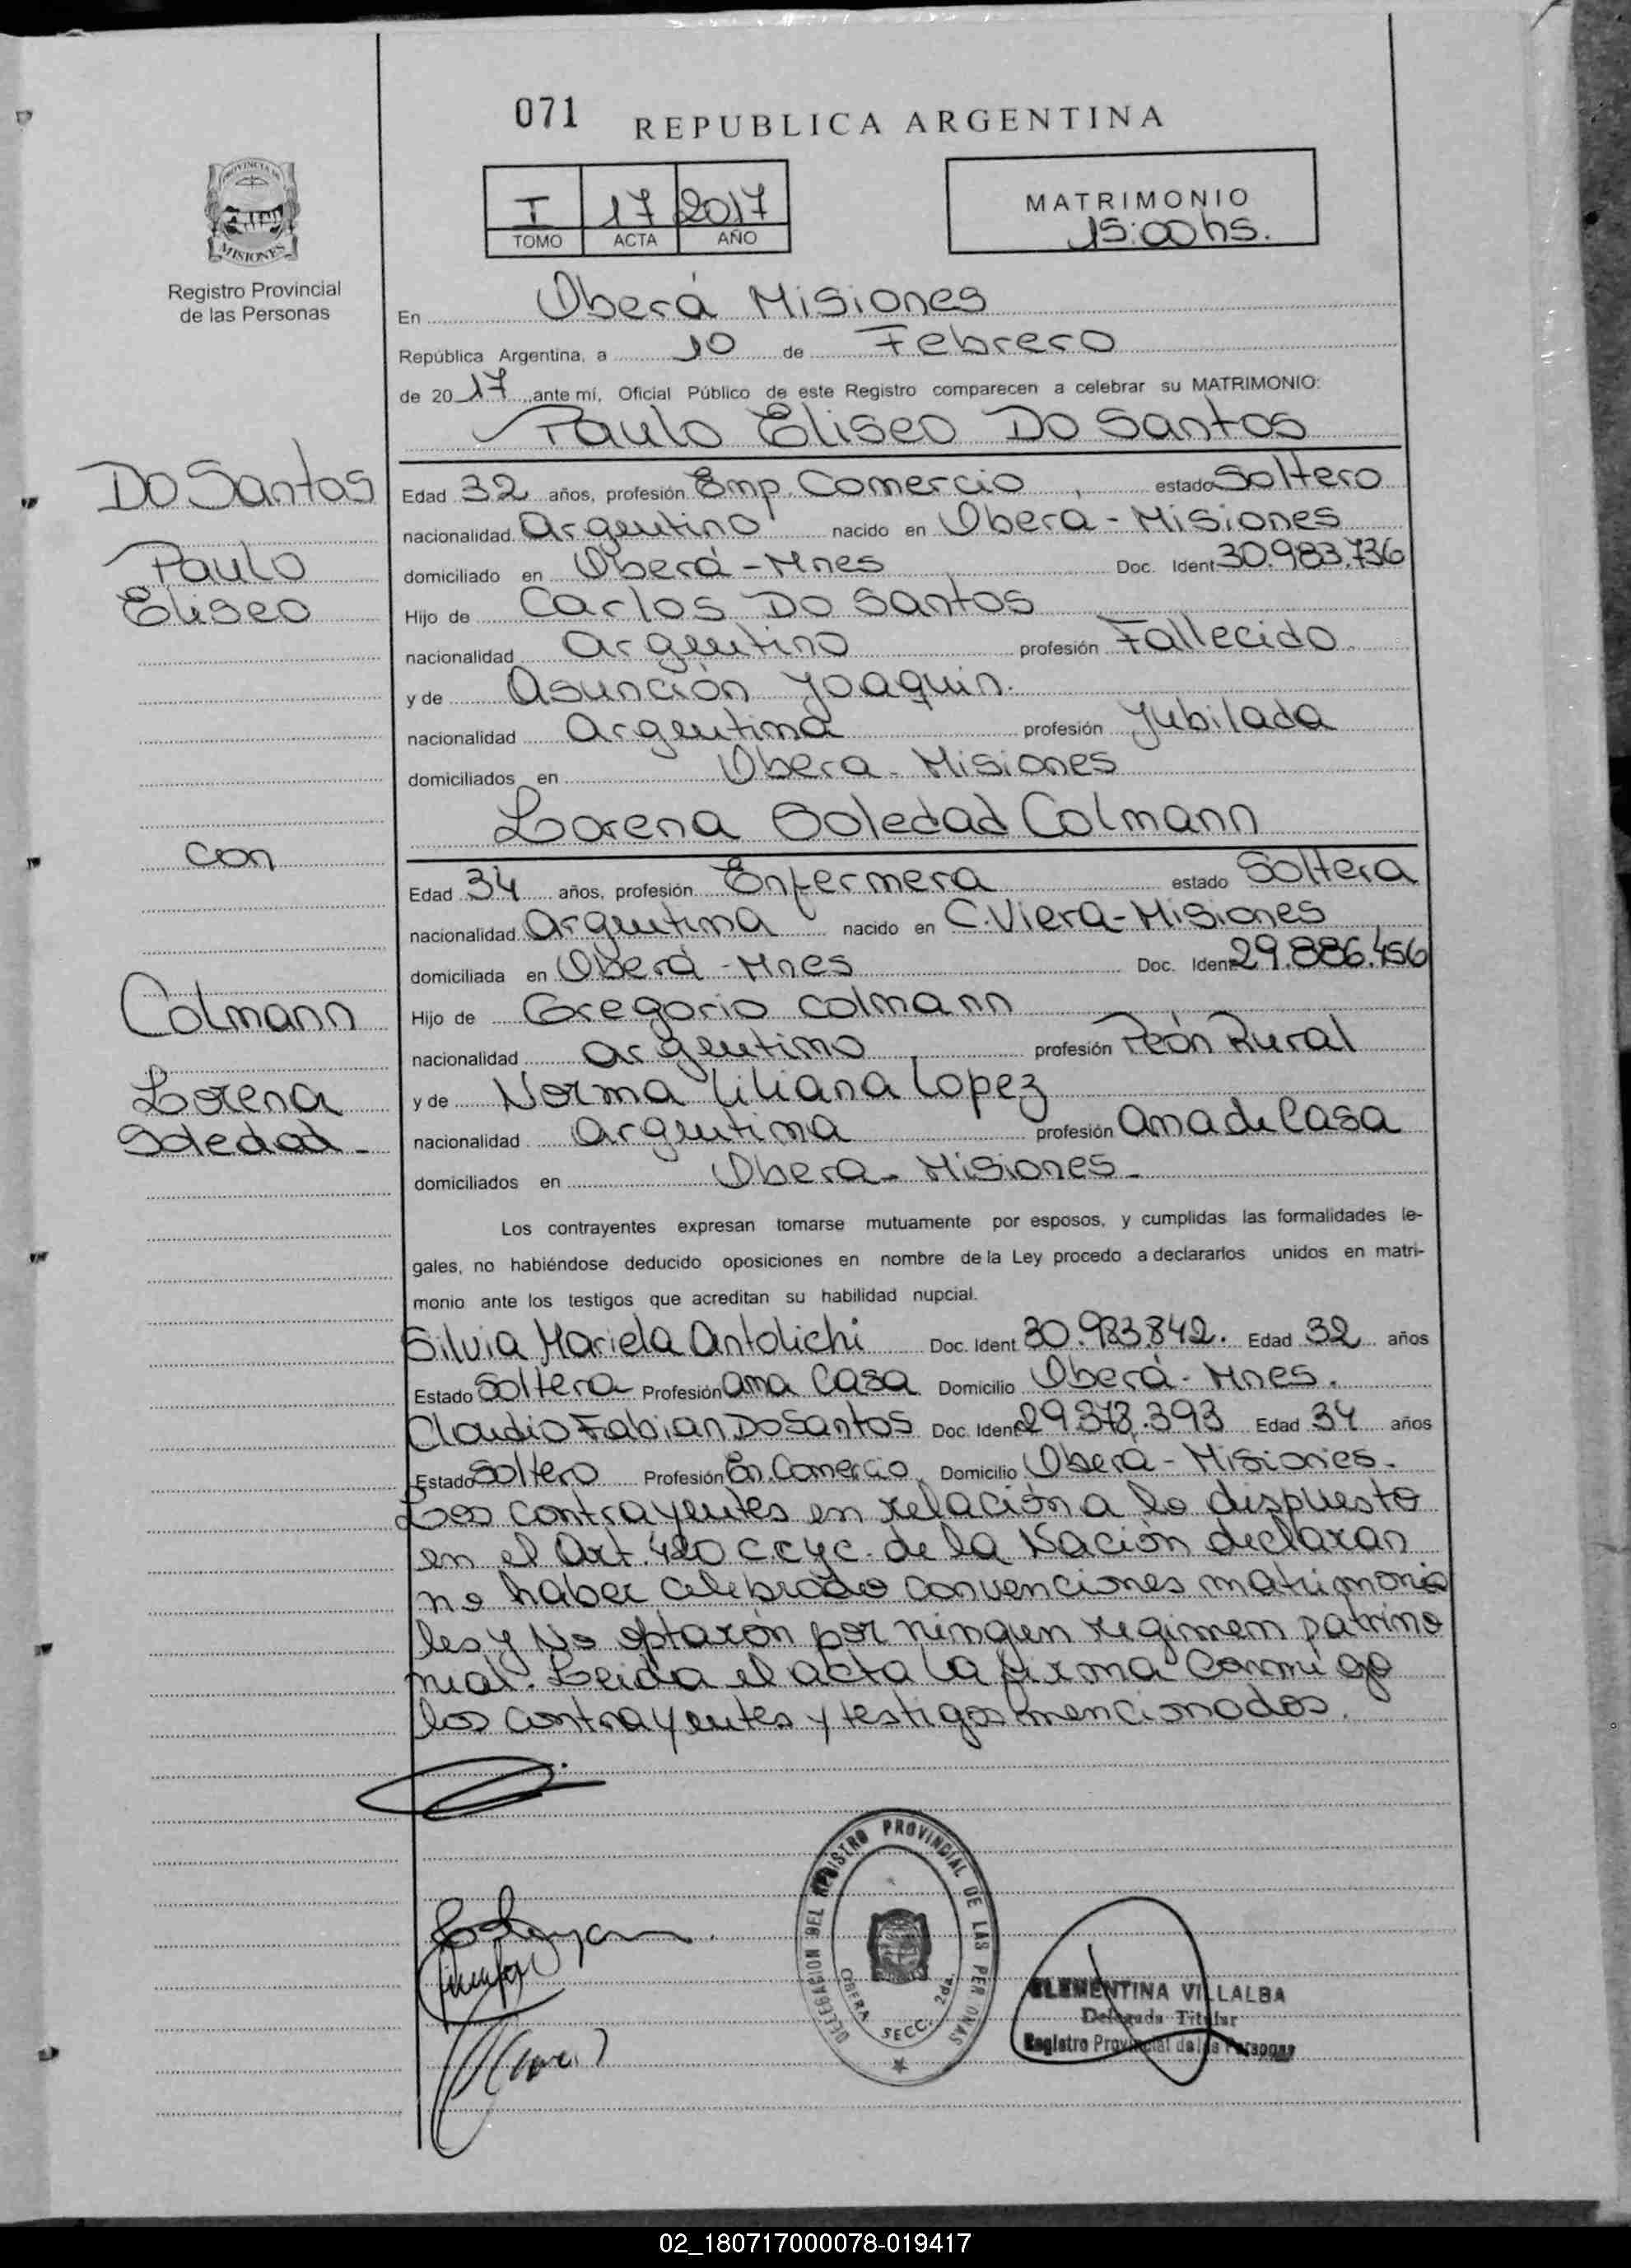 071 REPUBLICA ARGENTINA
PROVINCIA DE
MISIONES
Registro Provincial
de las Personas
I 17 2017
TOMO ACTA AÑO
MATRIMONIO
15:00hs.
En Oberá Misiones
República Argentina, a 10 de Febrero
de 2017 ante mí, Oficial Público de este Registro comparecen a celebrar su MATRIMONIO:
Paulo Eliseo Do Santos
Do Santos
Paulo
Eliseo
Edad 32 años, profesión Emp. Comercio, estado Soltero
nacionalidad Argentino nacido en Obera - Misiones
domiciliado en Oberá - Mnes Doc. Ident 30.983.736
Hijo de Carlos Do Santos
nacionalidad Argentino profesión Fallecido.
y de Asunción Joaquin.
nacionalidad Argentina profesión Jubilada
domiciliados en Obera - Misiones
Lorena Soledad Colmann
con
Colmann
Lorena
Soledad -
Edad 34 años, profesión Enfermera estado Soltera
nacionalidad Argentina nacido en C. Viera - Misiones
domiciliada en Oberá - Mnes Doc. Ident 29.886.456
Hijo de Gregorio Colmann
nacionalidad argentino profesión Peón Rural
y de Norma Liliana Lopez
nacionalidad argentina profesión ama de Casa
domiciliados en Obera - Misiones -
Los contrayentes expresan tomarse mutuamente por esposos, y cumplidas las formalidades le-
gales, no habiéndose deducido oposiciones en nombre de la Ley procedo a declararlos unidos en matri-
monio ante los testigos que acreditan su habilidad nupcial.
Silvia Mariela Antolichi Doc. Ident 30.983.842. Edad 32 años
Estado Soltera Profesión ama Casa Domicilio Oberá - Mnes.
Claudio Fabian Do Santos Doc. Ident 29.373.393 Edad 34 años
Estado Soltero Profesión En. Comercio, Domicilio Oberá - Misiones -
Los contrayentes en relación a lo dispuesto
en el Art. 420 C.C y C. de la Nación declaran
no haber celebrado convenciones matrimonia
les y No optarón por ningun regimen patrimo
nial. Leida el acta la firma conmigo
los contrayentes y testigos mencionados.
DELEGACION DEL REGISTRO PROVINCIAL DE LAS PERSONAS
OBERA SECC. 2da.
CLEMENTINA VILLALBA
Delegada Titular
Registro Provincial de las Personas
02_180717000078-019417